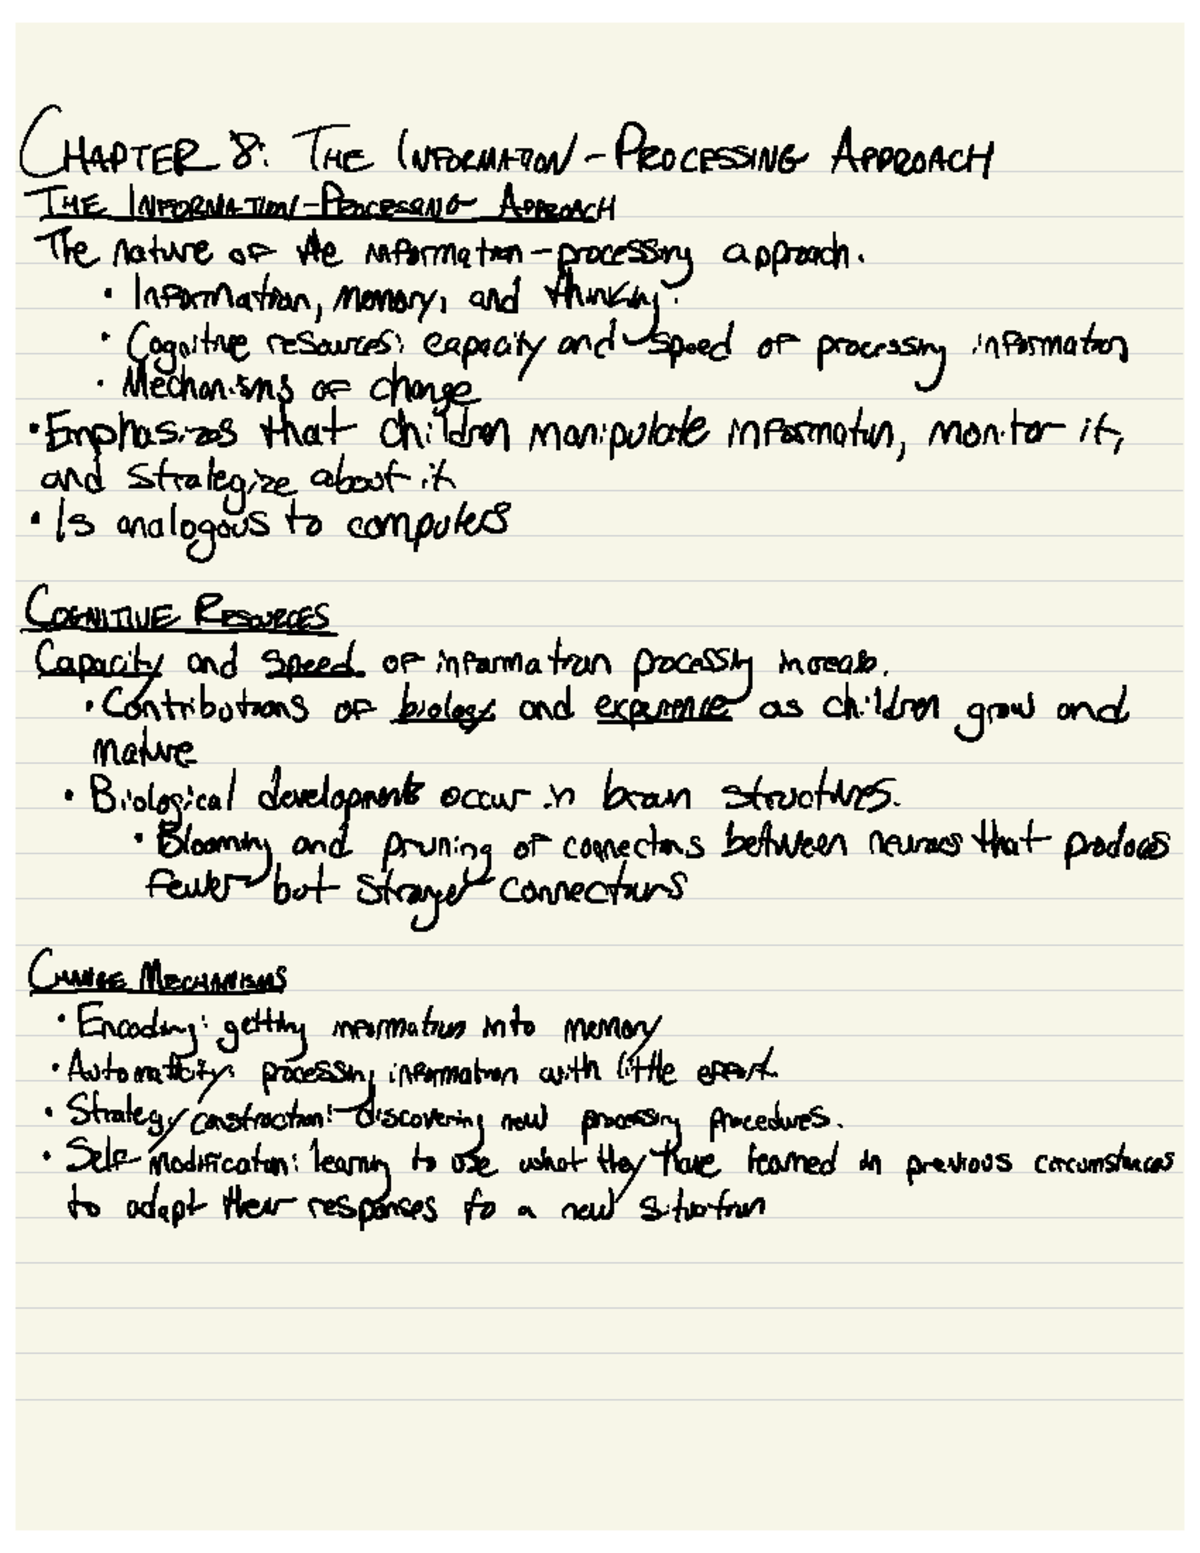 CHAPTER 8: THE INFORMATION-PROCESSING APPROACH
THE INFORMATION-PROCESSING APPROACH
The nature of the information-processing approach.
• Information, memory, and thinking.
• Cognitive resources: capacity and speed of processing information
• Mechanisms of change
• Emphasizes that children manipulate information, monitor it,
and strategize about it
• Is analogous to computers
COGNITIVE RESOURCES
Capacity and speed of information processing increase.
• Contributions of biology and experience as children grow and
mature
• Biological developments occur in brain structures.
• Blooming and pruning of connections between neurons that produces
fewer but stronger connections
CHANGE MECHANISMS
• Encoding: getting information into memory
• Automaticity: processing information with little effort.
• Strategy construction: discovering new processing procedures.
• Self-modification: learning to use what they have learned in previous circumstances
to adapt their responses to a new situation